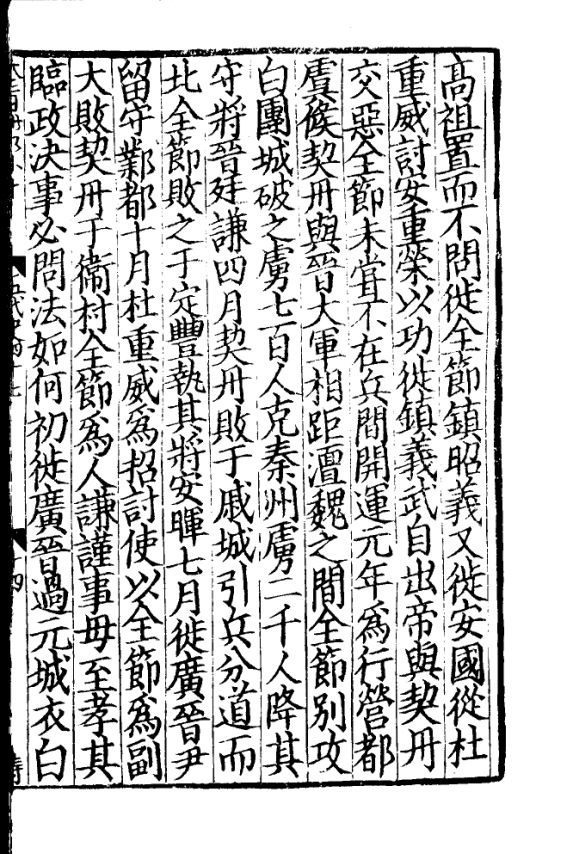 高祖置而不問徙全節鎮昭義又徙安國從杜
重威討安重榮以功徙鎮義武自出帝與契丹
交惡全節未嘗不在兵間開運元年爲行營都
虞候契丹與晉大軍相距澶魏之間全節别攻
白團城破之虜七百人克秦州虜二千人降其
守將晉廷謙四月契丹敗于戚城引兵分道而
北全節敗之于定豐執其將安暉七月徙廣晉尹
留守鄴都十月杜重威爲招討使以全節爲副
大敗契丹于衛村全節爲人謙謹事母至孝其
臨政決事必問法如何初徙廣晉過元城衣白